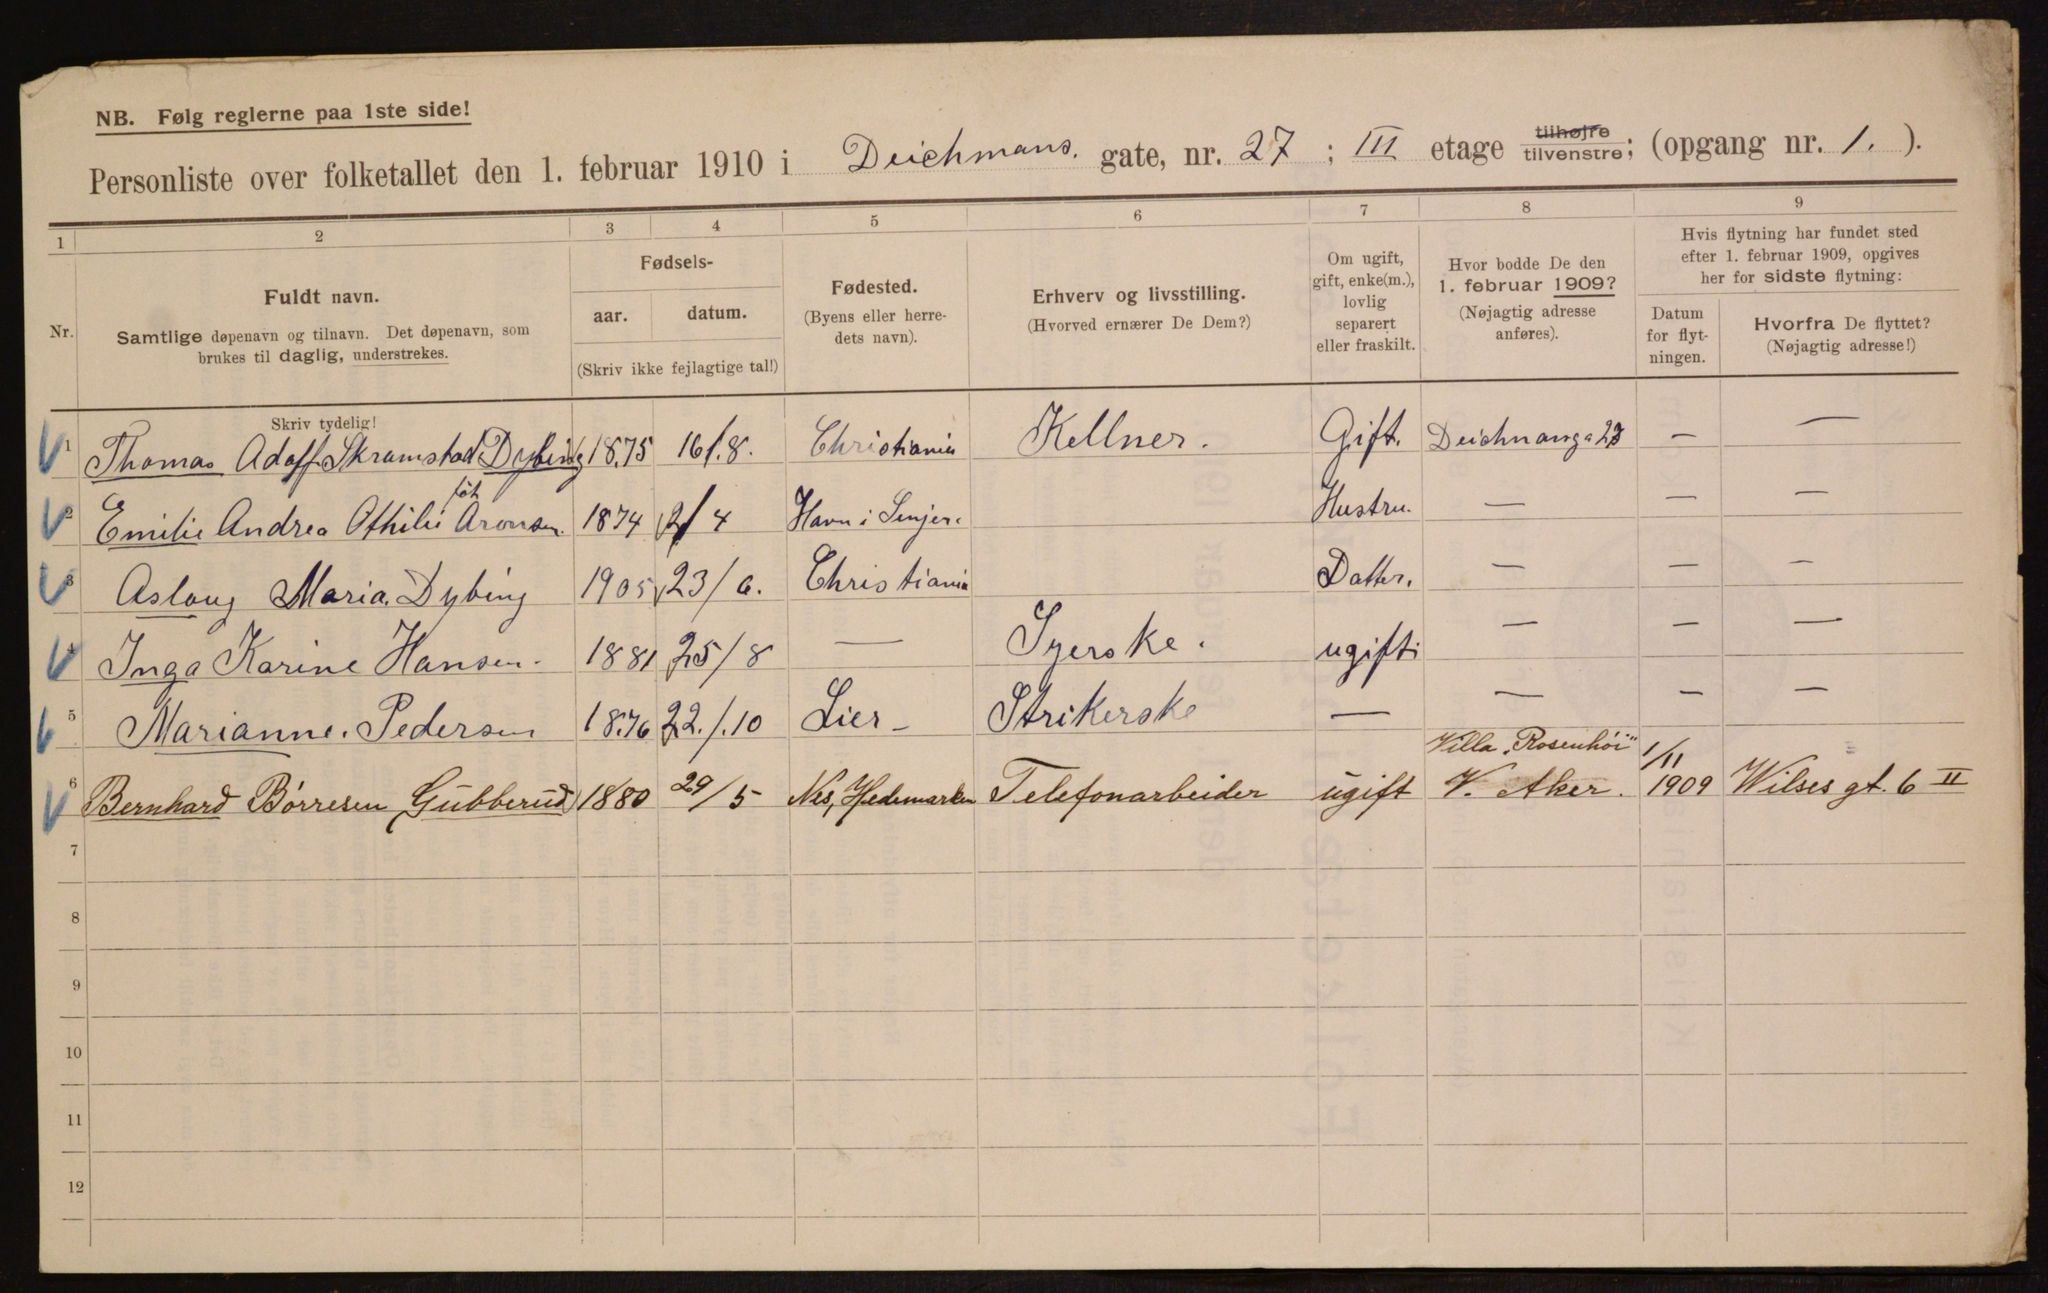 NB. Følg reglerne paa 1ste side!
Personliste over folketallet den 1. februar 1910 i Deichmans. gate, nr. 27 ; III etage tilhøjre tilvenstre; (opgang nr. 1. ).
1 2 3 4 5 6 7 8 9
Nr.
Fuldt navn.
Samtlige døpenavn og tilnavn. Det døpenavn, som
brukes til daglig, understrekes.
Skriv tydelig!
Fødsels-
aar. datum.
(Skriv ikke fejlagtige tal!)
Fødested.
(Byens eller herre-
dets navn).
Erhverv og livsstilling.
(Hvorved ernærer De Dem?)
Om ugift,
gift, enke(m.),
lovlig
separert
eller fraskilt.
Hvor bodde De den
1. februar 1909?
(Nøjagtig adresse
anføres).
Hvis flytning har fundet sted
efter 1. februar 1909, opgives
her for sidste flytning:
Datum
for flyt-
ningen.
Hvorfra De flyttet?
(Nøjagtig adresse!)
1 Thomas Adolf Skramstad Dybing 1875 16/.8. Christiania Kellner. Gift. — —
2 Emilie Andrea Othilie føt Aronsen. 1874 2/4 Havn i Hustru. — — —
3 Aslaug Maria. Dybing 1905 23/6. Christiania Datter. — — —
4 Inga Karine Hansen. 1881 25/8 — Syerske. ugift — — —
5 Marianne. Pedersen 1876 22./.10 Lier — Strikerske — — — —
6 Bernhard Børresen Gubberud 1880 29/5 Nes, Hedemarken Telefonarbeider ugift Villa „Rosenhøi" V. Aker. 1/11 1909 Wilses gt. 6 II
7
8
9
10
11
12